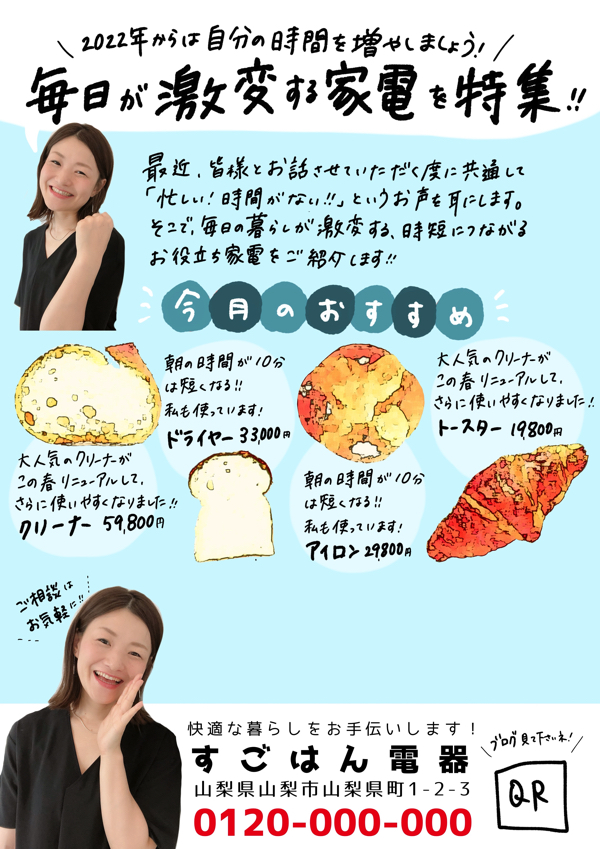 2022年からは自分の時間を増やしましょう!
毎日が激変する家電を特集!!
最近、皆様とお話させていただく度に共通して
「忙しい!時間がない!!」というお声を耳にします。
そこで、毎日の暮らしが激変する、時短につながる
お役立ち家電をご紹介します!!
今月のおすすめ
朝の時間が10分
は短くなる!!
私も使っています!
ドライヤー 33,000円
大人気のクリーナーが
この春リニューアルして、
さらに使いやすくなりました!!
トースター 19800円
大人気のクリーナーが
この春リニューアルして、
さらに使いやすくなりました!!
クリーナー 59,800円
朝の時間が10分
は短くなる!!
私も使っています!
アイロン 29800円
ご相談は
お気軽に!!
快適な暮らしをお手伝いします!
すごはん電器
山梨県山梨市山梨県町1-2-3
0120-000-000
ブログ見て下さいネ!
QR